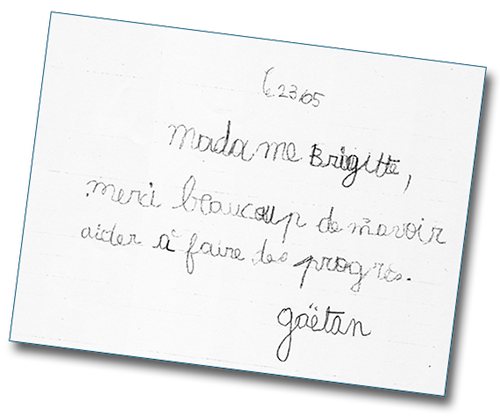 6 23/05
madame Brigitte,
merci beaucoup de m'avoir
aider à faire des progrès.
gaëtan